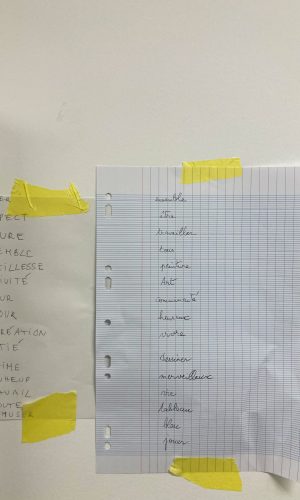 ER
PECT
URE
EMBLE
ILLESSE
IVITÉ
UR
OUR
RÉATION
TIÉ
IME
AVAIL
OUTE
MUSER
ensemble
être
travailler
tous
peinture
Art
communauté
heureux
vivre
dessiner
merveilleux
vie
tableau
bleu
jouer